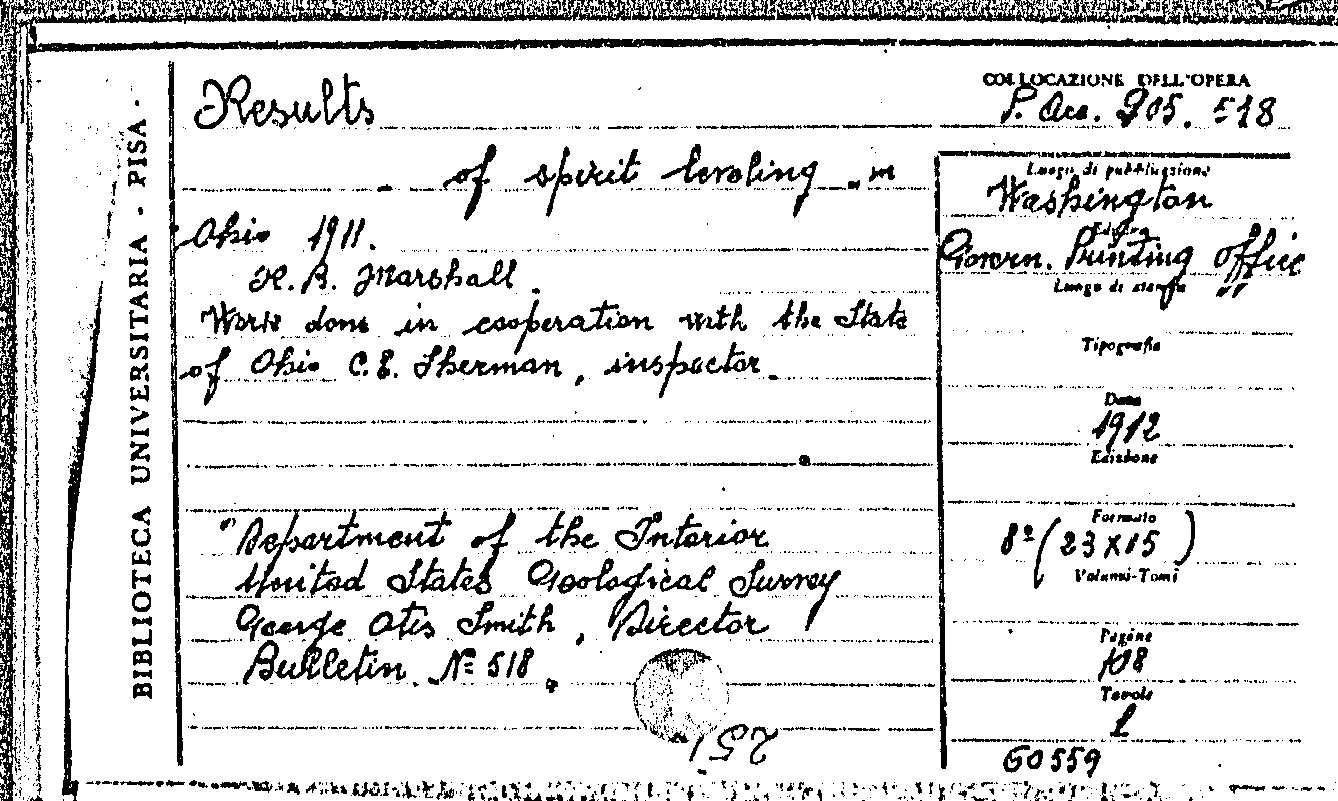 BIBLIOTECA UNIVERSITARIA - PISA -
Results
of spirit leveling in
Ohio 1911.
R. B. Marshall.
Work done in cooperation with the State
of Ohio C. E. Sherman, inspector.
"Department of the Interior
United States Geological Survey
George Otis Smith, Director
Bulletin N° 518.
251
COLLOCAZIONE DELL'OPERA
P. Acc. 905. 518
Luogo di pubblicazione
Washington
Editore
Govern. Printing Office
Luogo di stampa
""
Tipografia
Data
1912
Edizione
Formato
8° (23X15)
Volumi-Tomi
Pagine
108
Tavole
1
60559